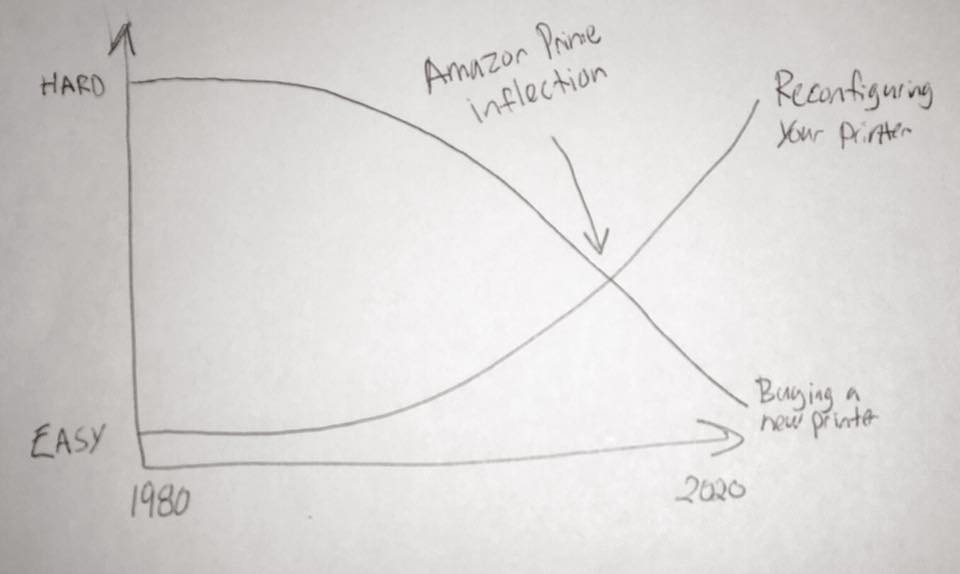 HARD
Amazon Prime
inflection
Reconfiguring
your printer
Buying a
new printer
EASY
1980
2020